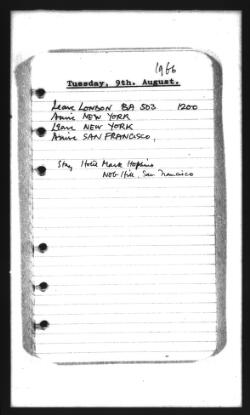 1966
Tuesday, 9th. August.
Leave LONDON BA 503 1200
Arrive NEW YORK
Leave NEW YORK
Arrive SAN FRANCISCO.
Stay Hotel Mark Hopkins
NOB Hill, San Francisco